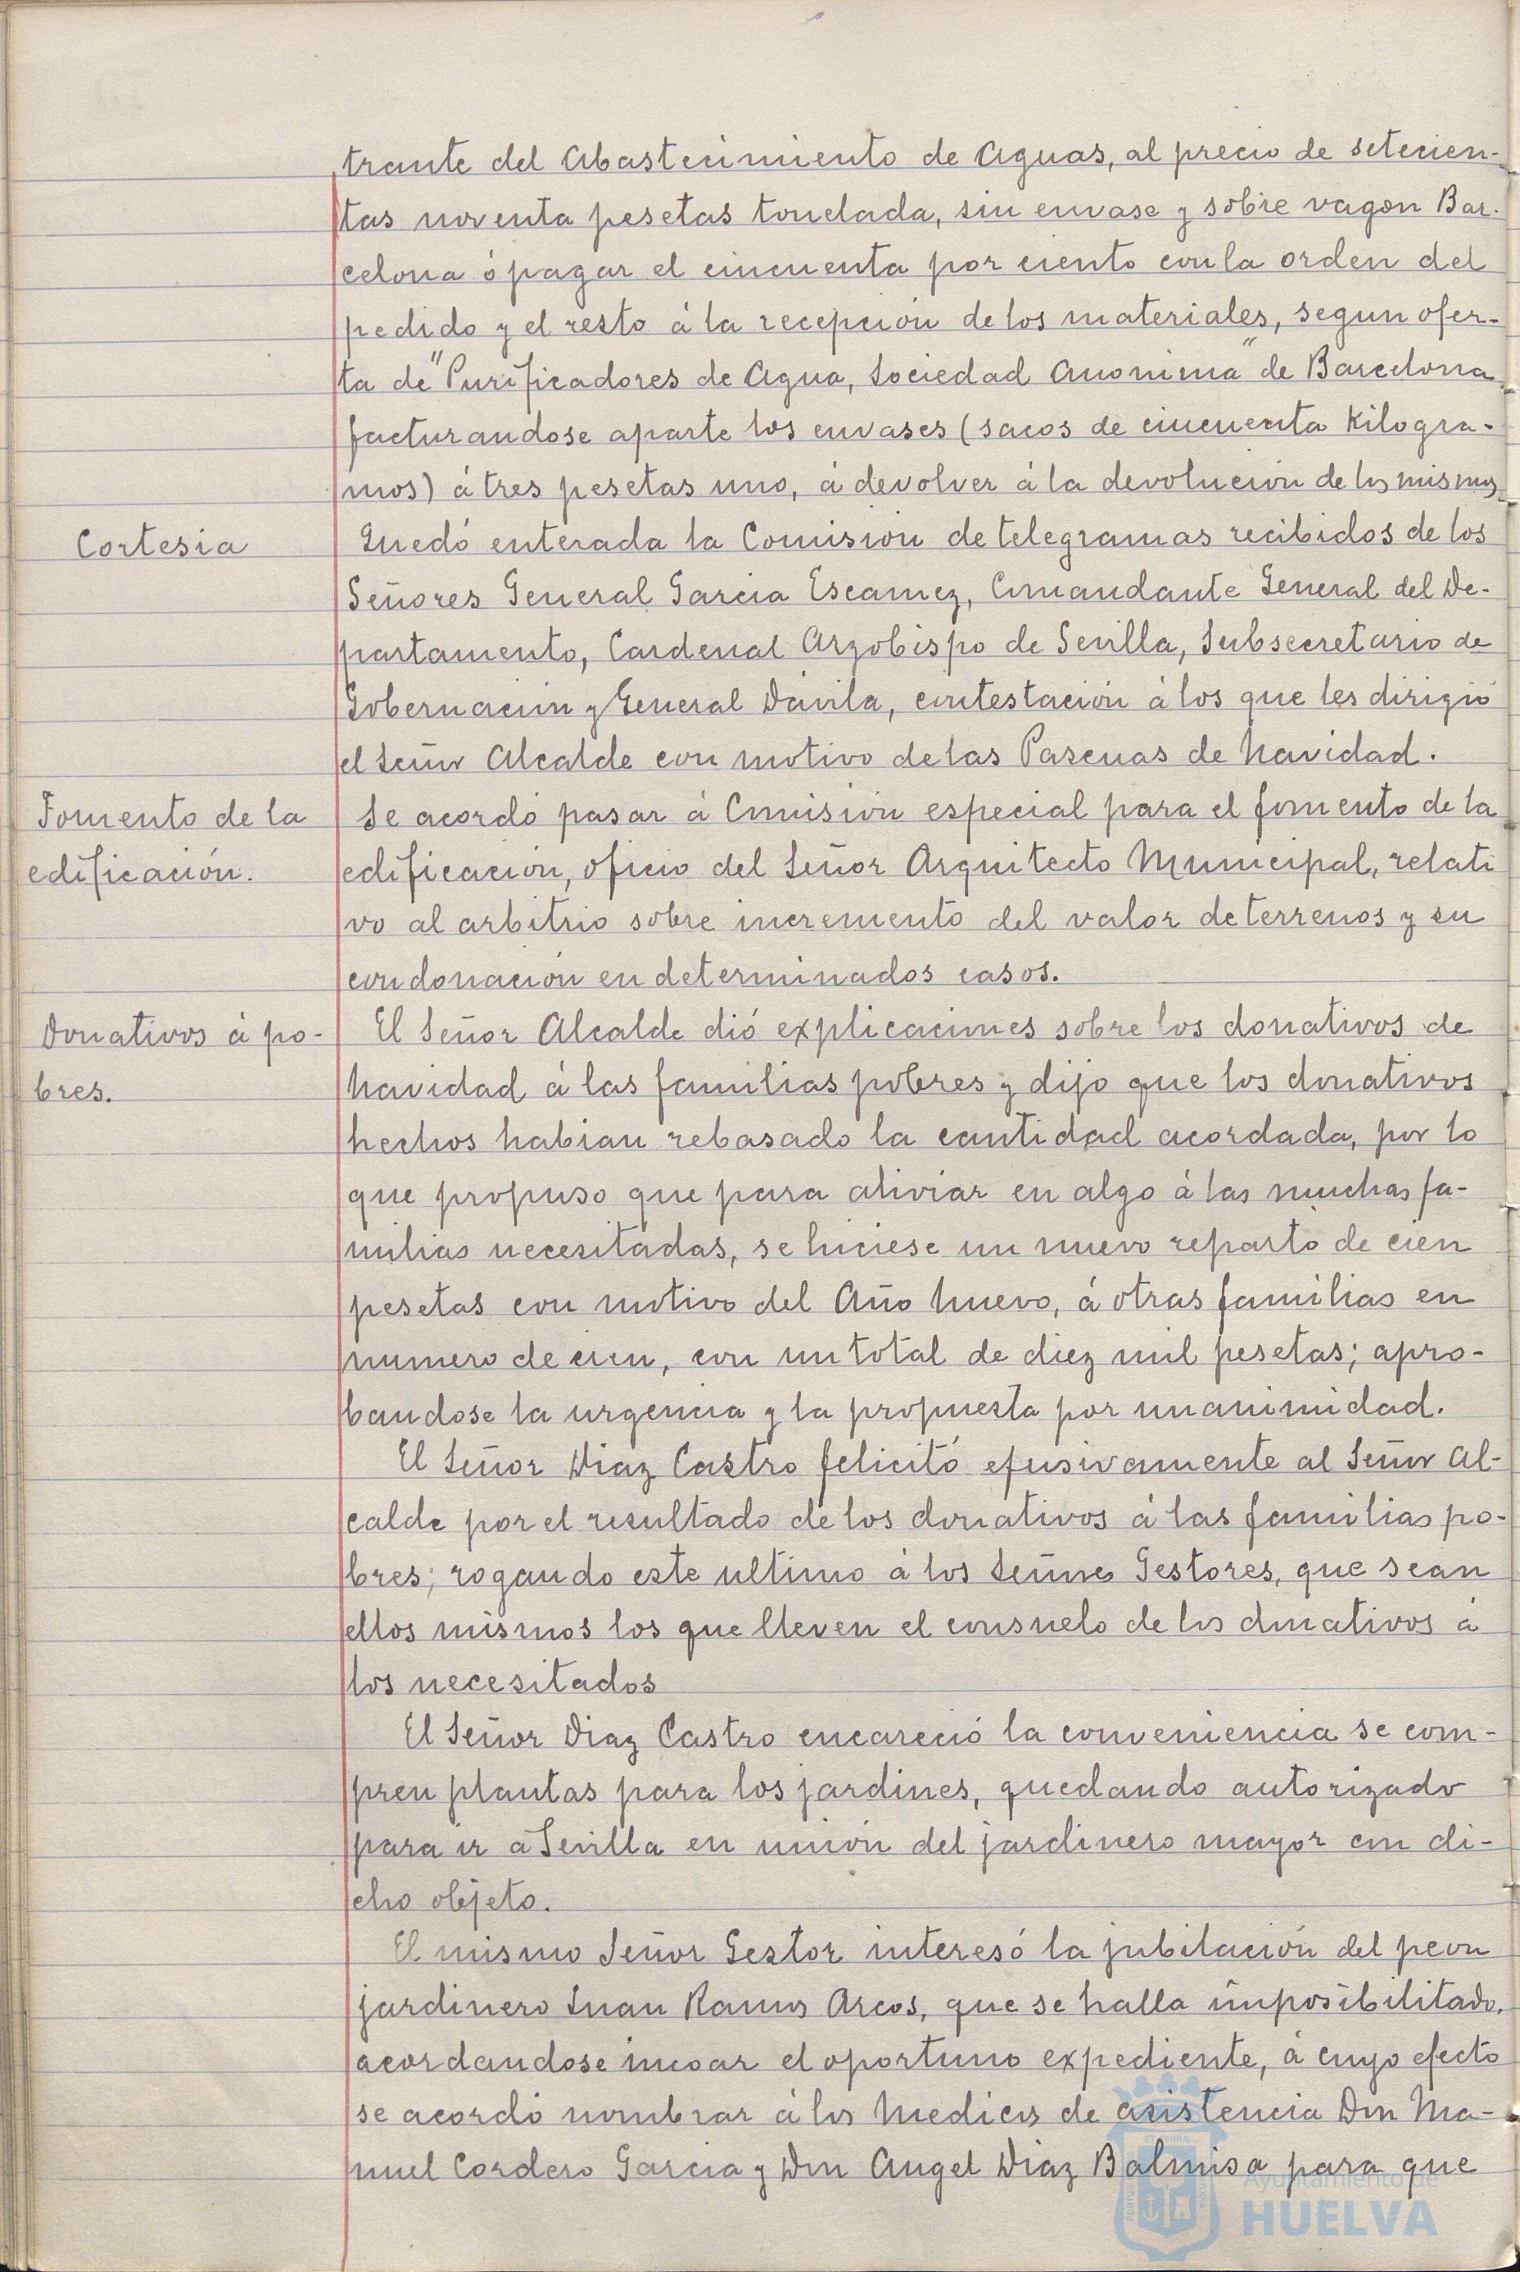 trante del Abastecimiento de Aguas, al precio de setecien-
tas noventa pesetas tonelada, sin envase y sobre vagon Bar-
celona ó pagar el cincuenta por ciento con la orden del
pedido y el resto á la recepción de los materiales, segun ofer-
ta de "Purificadores de Agua, Sociedad Anonima" de Barcelona
facturandose aparte los envases (sacos de cincuenta Kilogra-
mos) á tres pesetas uno, á devolver á la devolución de los mismos.
Cortesia
Quedó enterada la Comisión de telegramas recibidos de los
Señores General Garcia Escamez, Comandante General del De-
partamento, Cardenal Arzobispo de Sevilla, Subsecretario de
Gobernación y General Dávila, contestación á los que les dirigió
el Señor Alcalde con motivo de las Pascuas de Navidad.
Fomento de la
edificación.
Se acordó pasar á Comisión especial para el fomento de la
edificación, oficio del Señor Arquitecto Municipal, relati
vo al arbitrio sobre incremento del valor de terrenos y su
condonación en determinados casos.
Donativos á po-
bres.
El Señor Alcalde dió explicaciones sobre los donativos de
Navidad á las familias pobres y dijo que los donativos
hechos habian rebasado la cantidad acordada, por lo
que propuso que para aliviar en algo á las muchas fa-
milias necesitadas, se hiciese un nuevo reparto de cien
pesetas con motivo del Año Nuevo, á otras familias en
numero de cien, con un total de diez mil pesetas; apro-
bandose la urgencia y la propuesta por unanimidad.
El Señor Diaz Castro felicitó efusivamente al Señor Al-
calde por el resultado de los donativos á las familias po-
bres; rogando este ultimo á los Señores Gestores, que sean
ellos mismos los que lleven el consuelo de los donativos á
los necesitados
El Señor Diaz Castro encareció la conveniencia se com-
pren plantas para los jardines, quedando autorizado
para ir a Sevilla en unión del jardinero mayor con di-
cho objeto.
El mismo Señor Gestor interesó la jubilación del peon
jardinero Juan Ramos Arcos, que se halla imposibilitado,
acordandose incoar el oportuno expediente, á cuyo efecto
se acordó nombrar á los Medicos de asistencia Don Ma-
nuel Cordero Garcia y Don Angel Diaz Balmisa para que
Ayuntamiento de
HUELVA